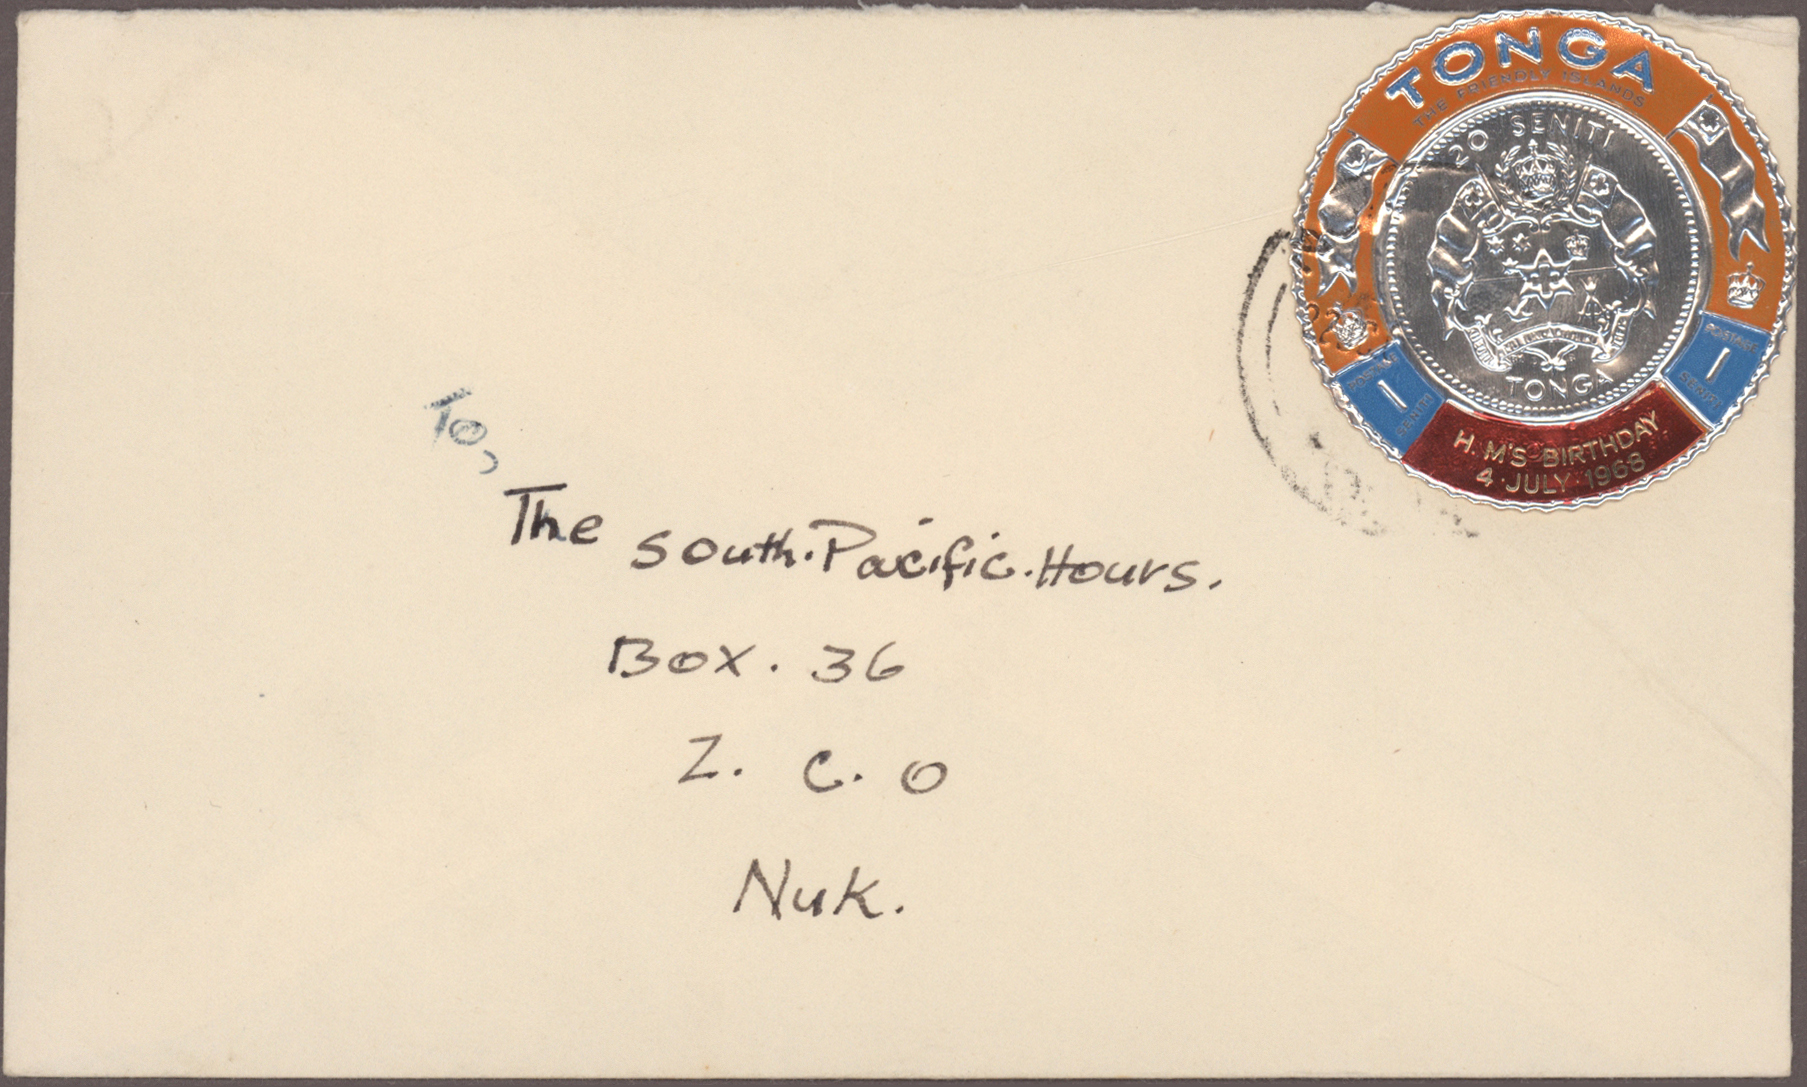 TONGA
THE FRIENDLY ISLANDS
20 SENITI
TONGA
POSTAGE
1
SENITI
POSTAGE
1
SENITI
H.M'S BIRTHDAY
4·JULY·1968
To,
The South.Pacific.Hours.
Box. 36
Z. C. O
Nuk.